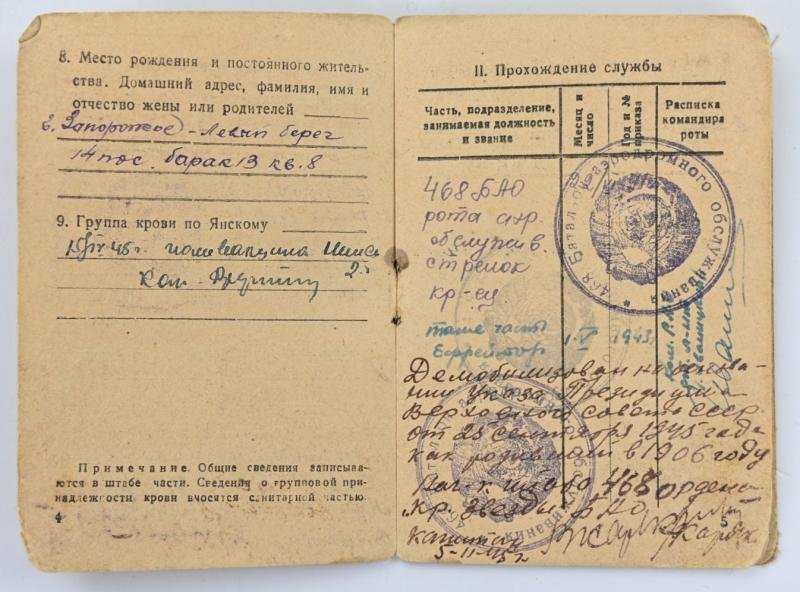 8. Место рождения и постоянного жительства. Домашний адрес, фамилия, имя и
отчество жены или родителей
г. Запорожье - Левый берег
14 пос. барак 13 кв. 8
9. Группа крови по Янскому
Примечание. Общие сведения записываются в штабе части. Сведения о групповой принадлежности крови вносятся санитарной частью.
4
II. Прохождение службы
Часть, подразделение, занимаемая должность и звание
Месяц и число
Год и № приказа
Расписка командира роты
468 БАО
рота аэр.
обслужив.
стрелок
кр-ец.
468 Батальон аэродромного обслуживания
тоже часть 1.V 1943г
Ефрейтор
Демобилизован на основа-
нии Указа Президиума
Верховного совета СССР
от 25 сентября 1945 года
как родивший в 1906 году
Нач-к штаба 468 ордена
Кр. Звезды БАО
капитан
5-11-45г
5